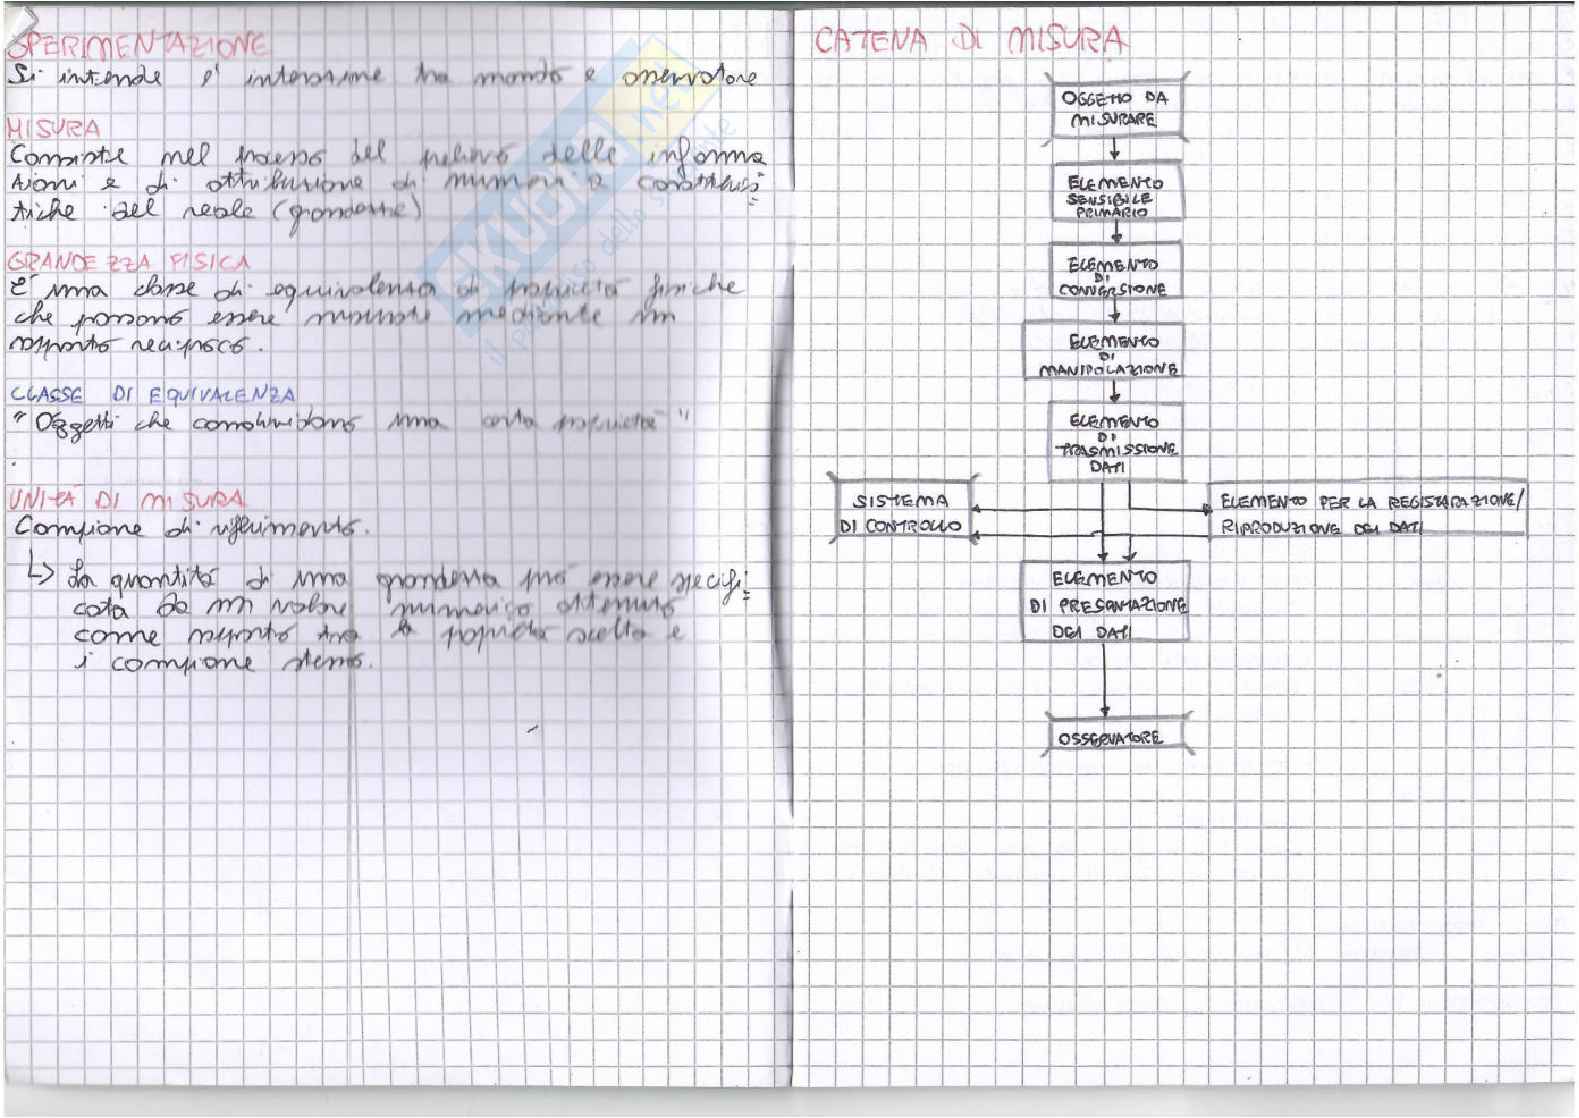 SPERIMENTAZIONE
Si intende l'interazione tra mondo e osservatore
MISURA
Consiste nel processo del prelievo delle informa
zioni e di attribuzione di numeri a caratteris
tiche del reale (grandezze)
GRANDEZZA FISICA
È una classe di equivalenza di proprietà fisiche
che possono essere misurate mediante un
rapporto reciproco.
CLASSE DI EQUIVALENZA
"Oggetti che condividono una certa proprietà"
UNITÀ DI MISURA
Campione di riferimento.
↳ La quantità di una grandezza può essere specifi
cata da un valore numerico ottenuto
come rapporto tra la proprietà scelta e
i campione stesso.
CATENA DI MISURA
OGGETTO DA
MISURARE
ELEMENTO
SENSIBILE
PRIMARIO
ELEMENTO
DI
CONVERSIONE
ELEMENTO
DI
MANIPOLAZIONE
ELEMENTO
DI
TRASMISSIONE
DATI
SISTEMA
DI CONTROLLO
ELEMENTO PER LA REGISTRAZIONE/
RIPRODUZIONE DEI DATI
ELEMENTO
DI PRESENTAZIONE
DEI DATI
OSSERVATORE
SKUOLA.net
il paradiso dello studente